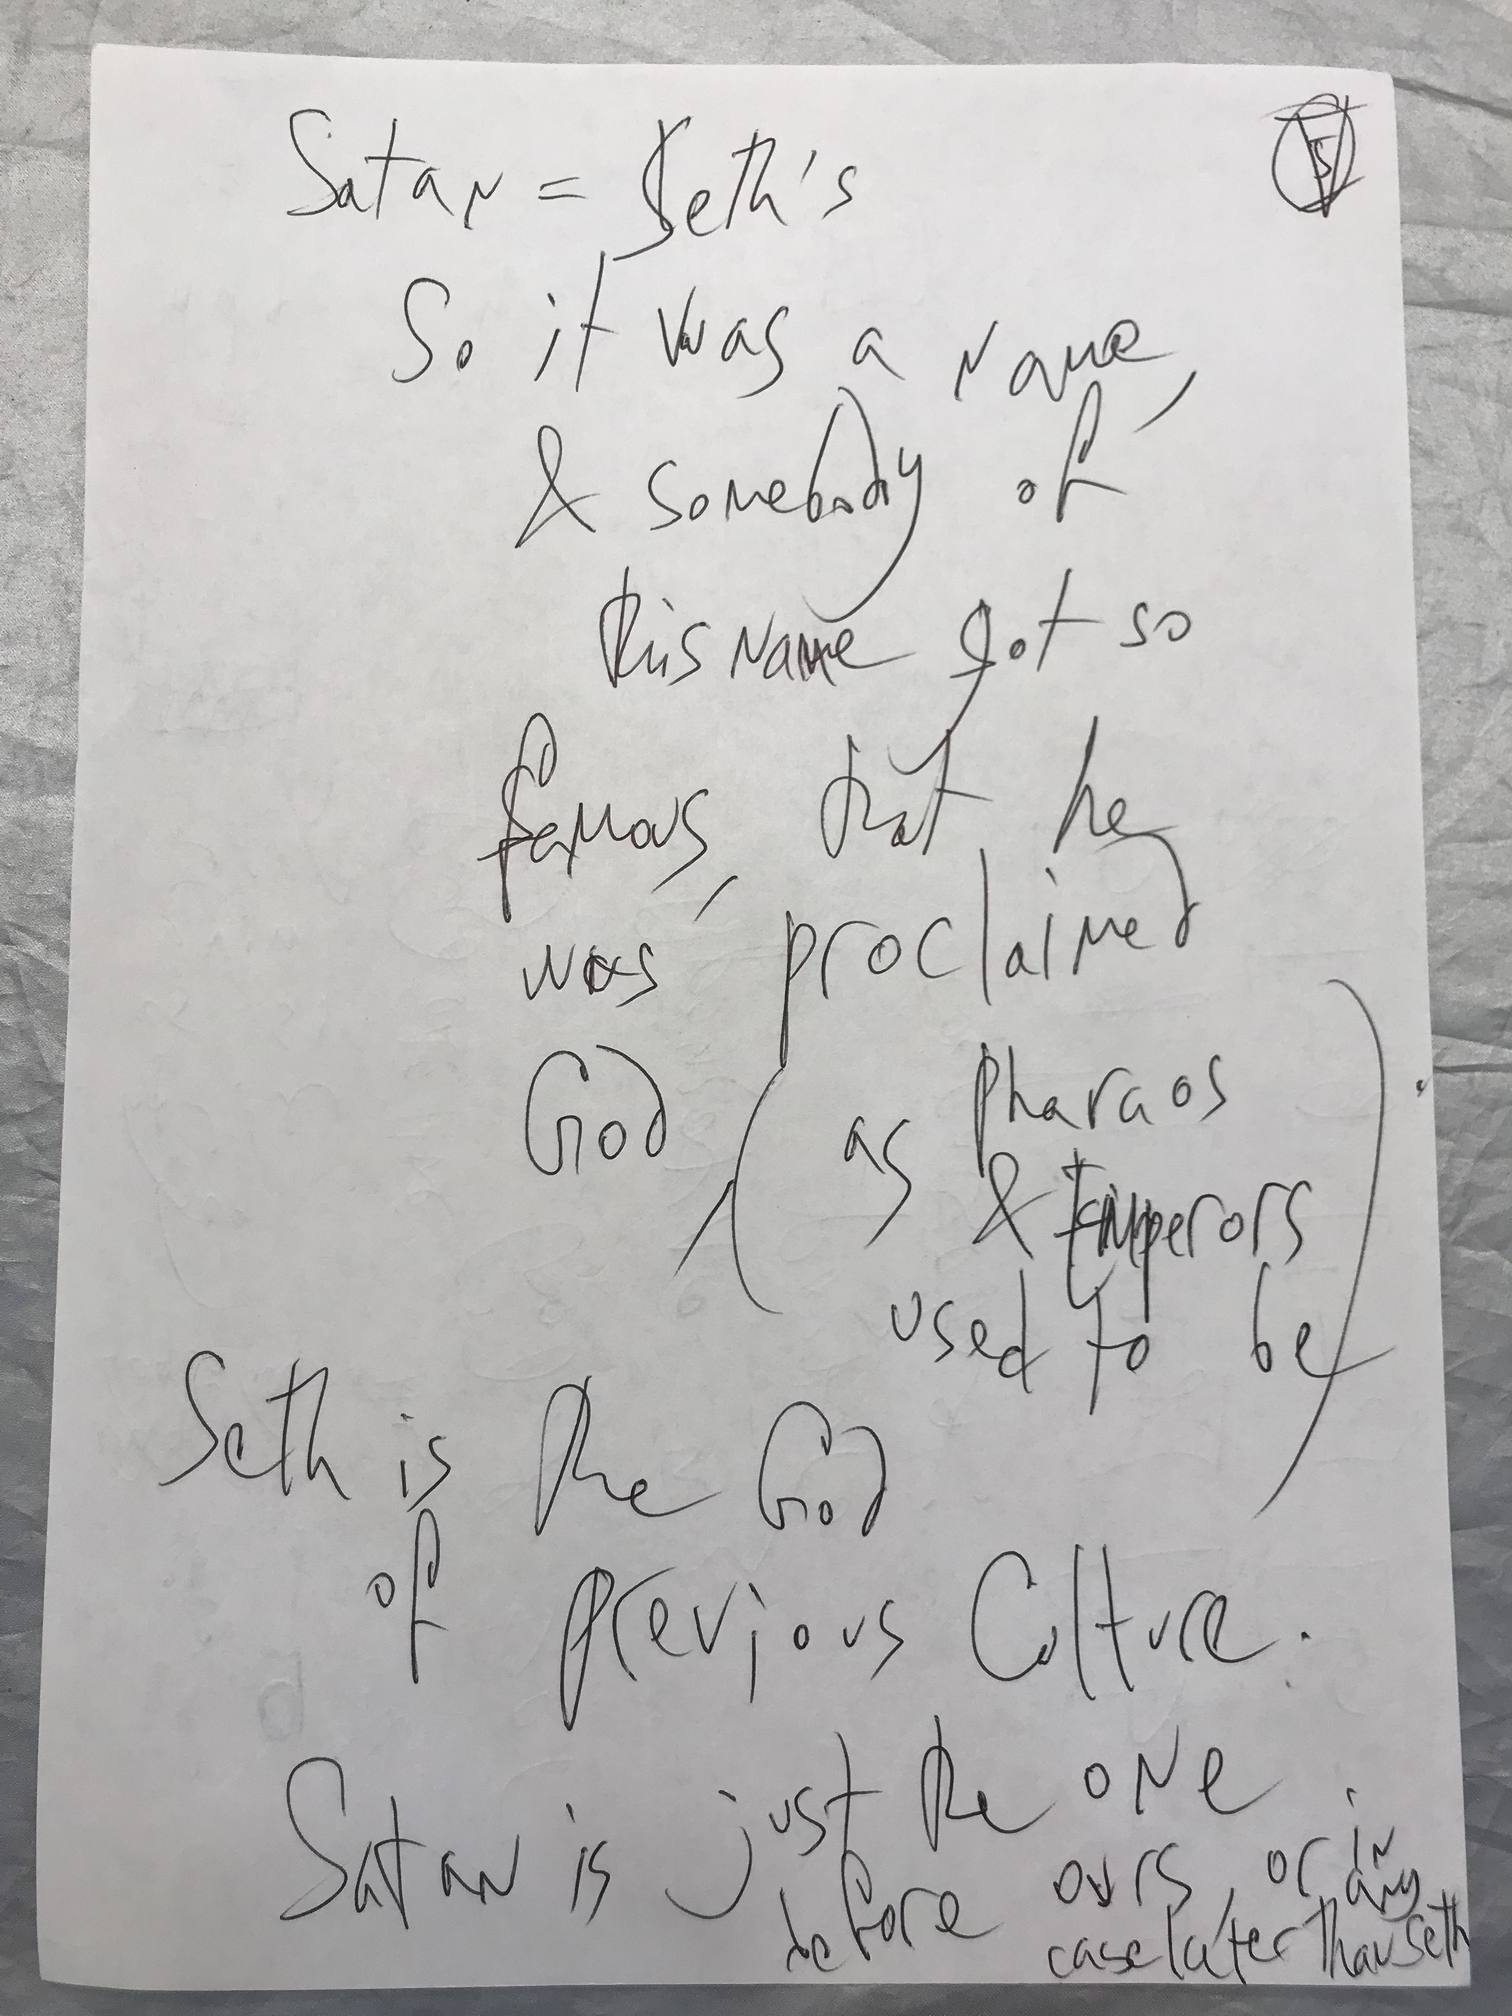 5
Satan = Seth's
So it was a name,
& somebody of
this name got so
famous, that he
was proclaimed
God (as Pharaos
& Emperors
used to be).
Seth is the God
of previous Culture.
Satan is just the one
before ours, or in any
case later than Seth